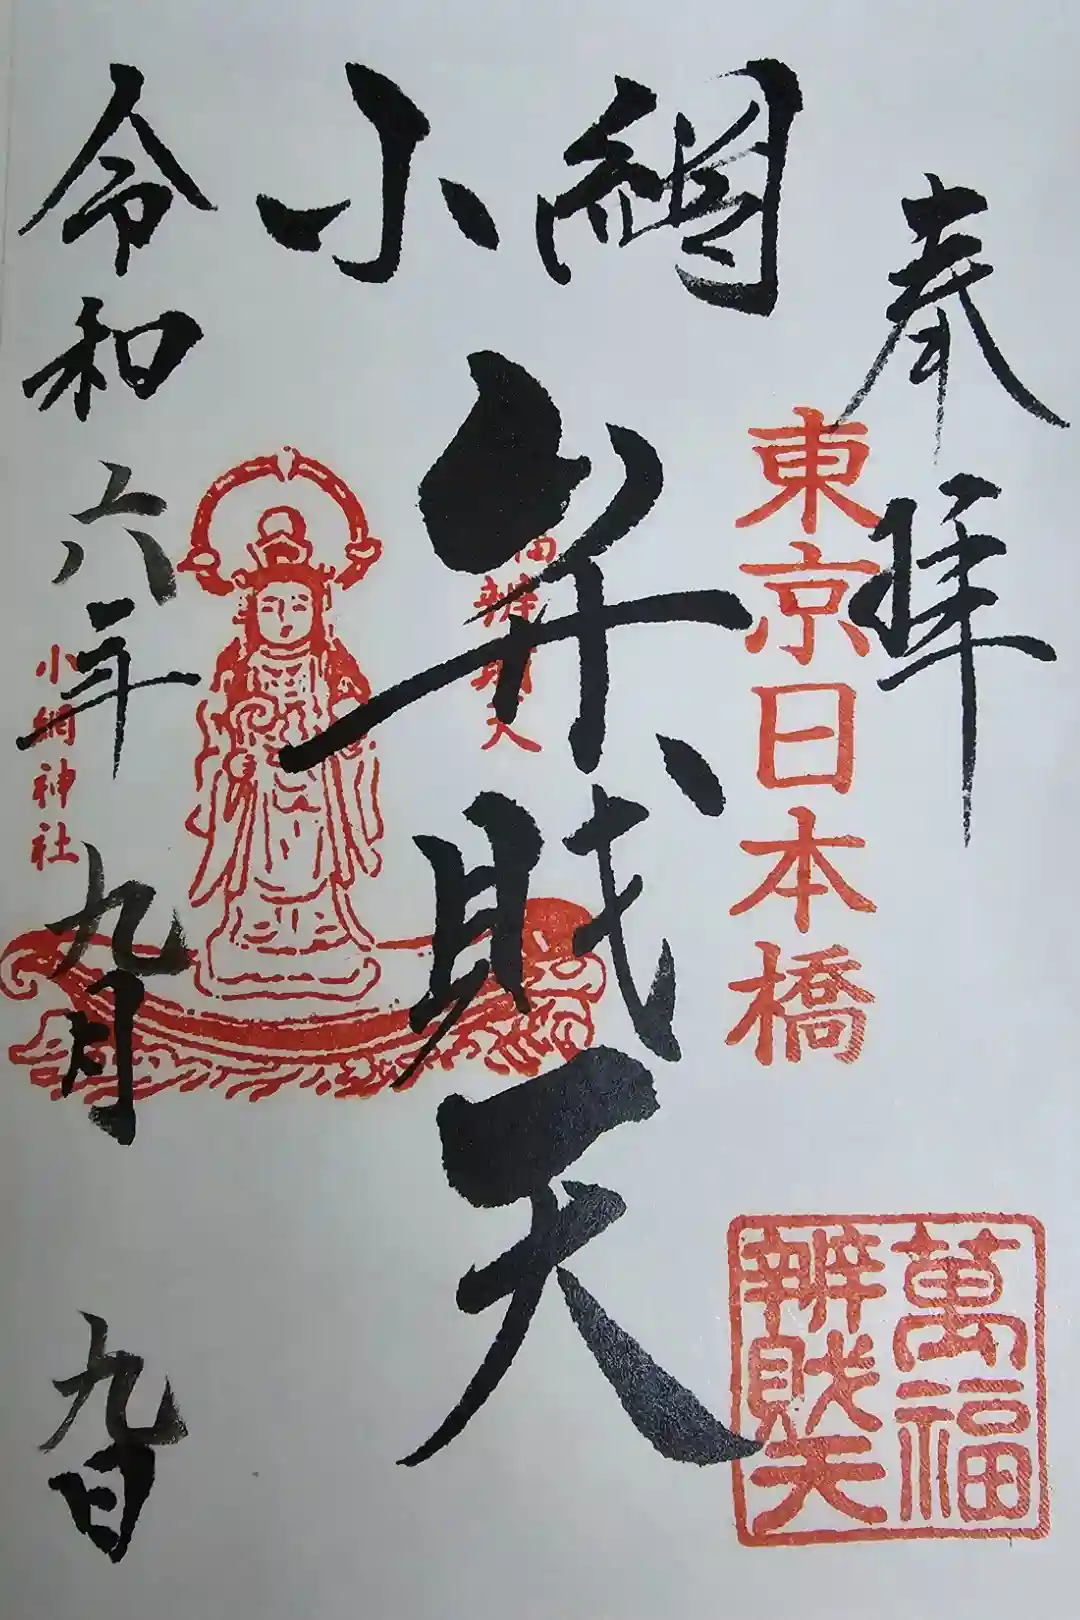 奉拝
東京日本橋
萬福
辨財天
小網
弁財天
福辨財天
小網神社
令和六年九月九日